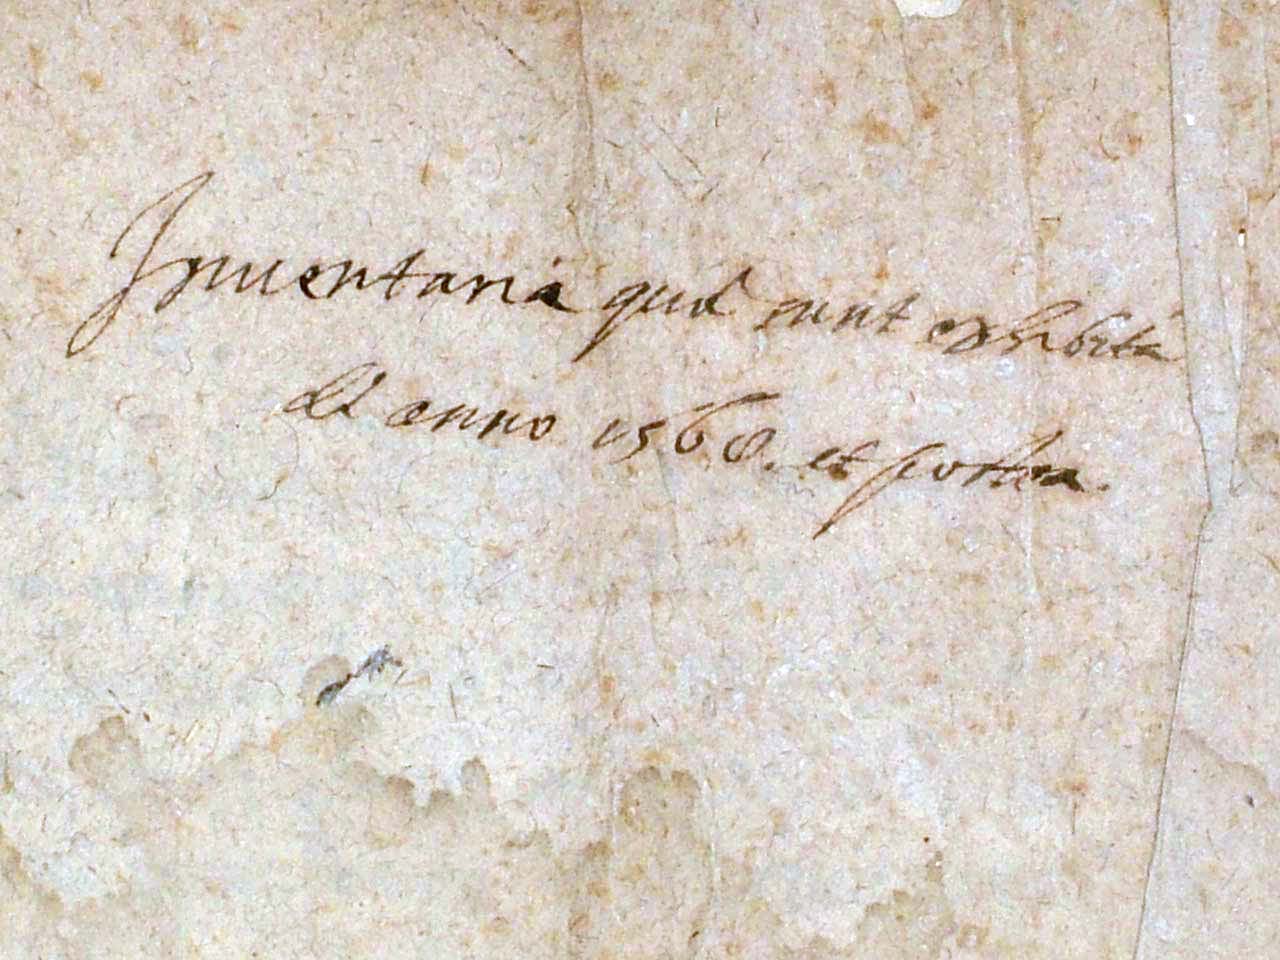 Inventaria quæ sunt exhibita
de anno 1568. et postea.